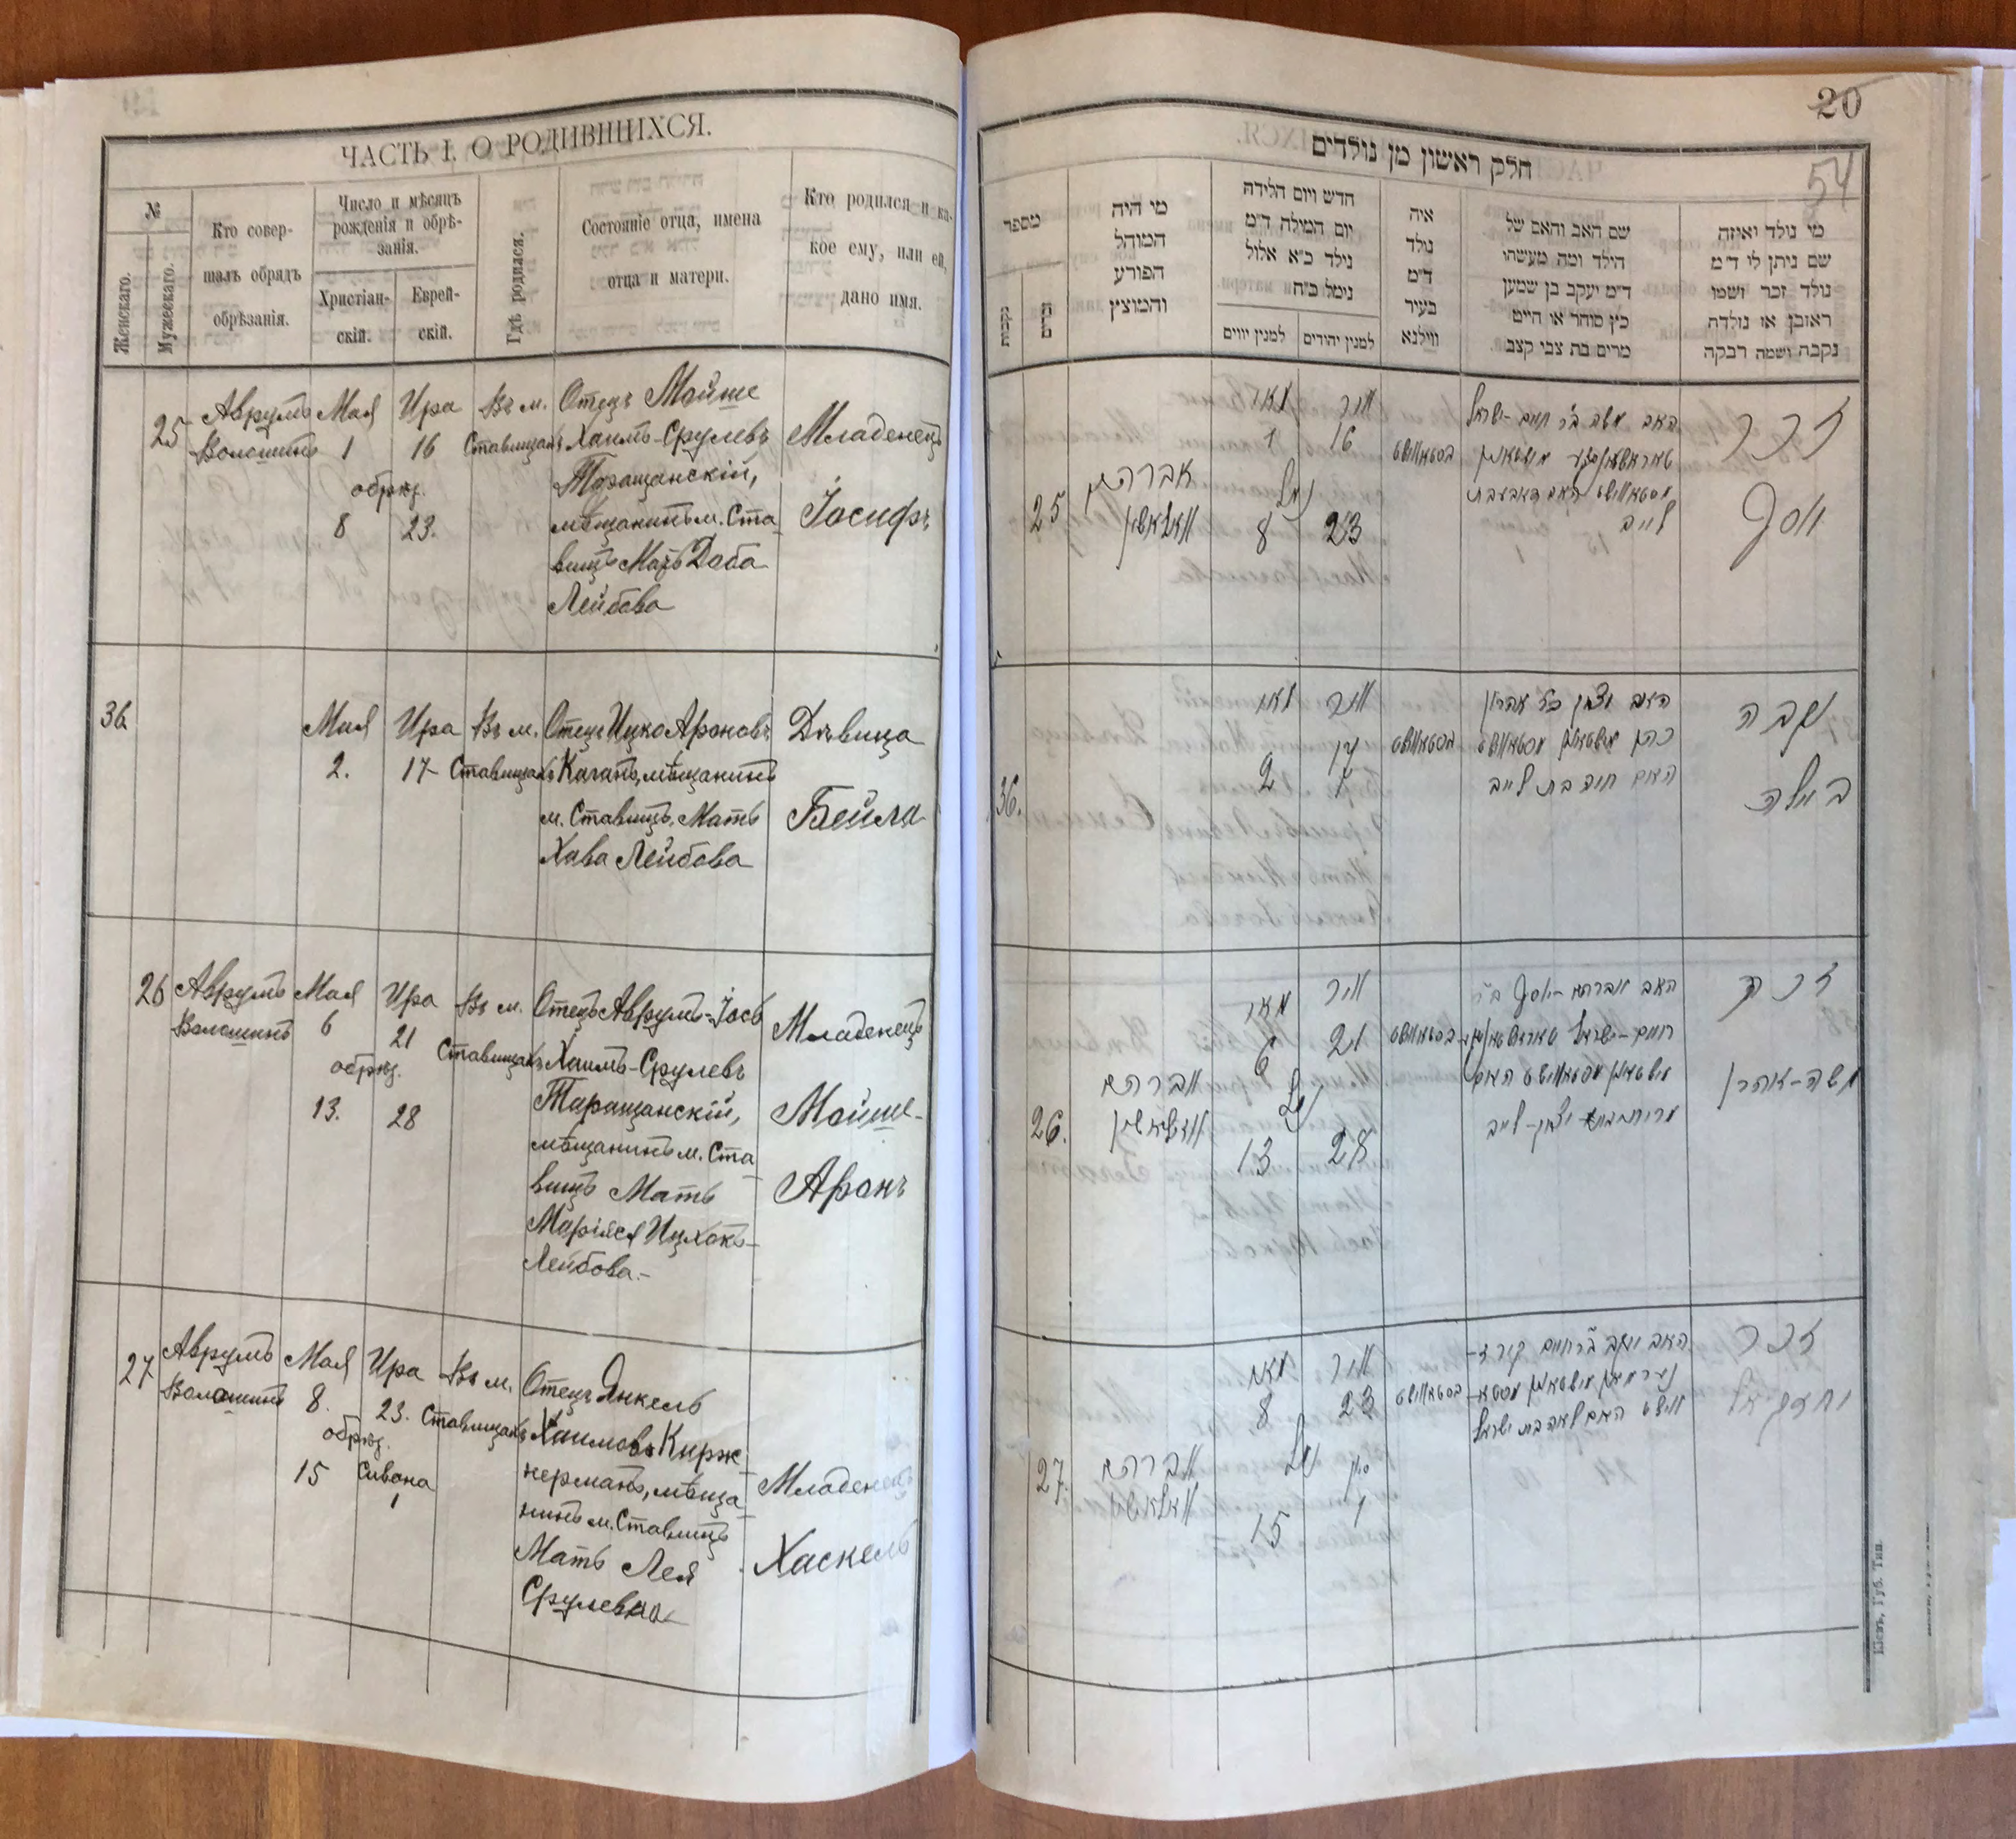 ЧАСТЬ I. О РОДИВШИХСЯ.
№
Женскаго.
Мужескаго.
Кто совер-
шалъ обрядъ
обрѣзанія.
Число и мѣсяцъ
рожденія и обрѣ-
занія.
Христіан-
скій.
Еврей-
скій.
Гдѣ родился.
Состояніе отца, имена
отца и матери.
Кто родился и ка-
кое ему, или ей,
дано имя.
25
Аврумъ
Волошинъ
Мая
1
обрѣз.
8
Ира
16
23.
Въ м.
Ставищахъ
Отецъ Мойше
Хаимъ-Срулевъ
Таращанскій,
мѣщанинъ м. Ста
вищъ Мать Доба
Лейбова
Младенецъ
Іосифъ
36
Мая
2.
Ира
17
Въ м.
Ставищахъ
Отецъ Ицко Ароновъ
Каганъ, мѣщанинъ
м. Ставищъ, Мать
Хава Лейбова
Дѣвица
Бейла
26
Аврумъ
Волошинъ
Мая
6
обрѣз.
13.
Ира
21
28
Въ м.
Ставищахъ
Отецъ Аврумъ-Іосъ
Хаимъ-Срулевъ
Таращанскій,
мѣщанинъ м. Ста
вищъ Мать
Маріяся Ицхокъ-
Лейбова.-
Младенецъ
Мойше-
Аронъ
27
Аврумъ
Волошинъ
Мая
8.
обрѣз.
15
Ира
23.
Сивона
1
Въ м.
Ставищахъ
Отецъ Янкель
Хаимовъ Кирж
нерманъ, мѣща
нинъ м. Ставищъ
Мать Лея
Срулевна
Младенецъ
Хаскель
20
54
חלק ראשון מן נולדים
מספר
נקבות
זכרים
מי היה
המוהל
הפורע
והמוצץ
חדש ויום הלידה
יום המולה ד״מ
נולד כ״א אלול
נימול כ״ח
למנין יווים
למנין יהודים
איה
נולד
ד״מ
בעיר
ווילנא
שם האב והאם של
הילד ומה מעשהו
ד״מ יעקב בן שמען
כץ סוחר או חייט
מרים בת צבי קצב
מי נולד ואיזה
שם ניתן לו ד״מ
נולד זכר ושמו
ראובן או נולדה
נקבה ושמה רבקה
25
אברהם
וואלאשין
מאי
1
נימול
8
אייר
16
23
בסטאווישט
האב משה ב״ר חיים-ישראל
לייב
זכר
יוסף
36.
מאי
2
אייר
17
בסטאווישט
האב יצחק ב״ר אהרון
כהן מישטאנין מסטאווישט
האם חוה בת לייב
נקבה
ביילה
26.
אברהם
וואלאשין
מאי
6
נימול
13
אייר
21
28
בסטאווישט
האב אברהם-יוסף ב״ר
מישטאנין מסטאווישט האם
זכר
משה-אהרן
27.
אברהם
וואלאשין
מאי
8
נימול
15
אייר
23
סיון
1
בסטאווישט
האב יעקב ב״ר חיים קירז-
נערמאן מישטאנין מסטא-
ווישט האם לאה בת ישראל
זכר
יחזקיאל
Кіевъ, Губ. Тип.